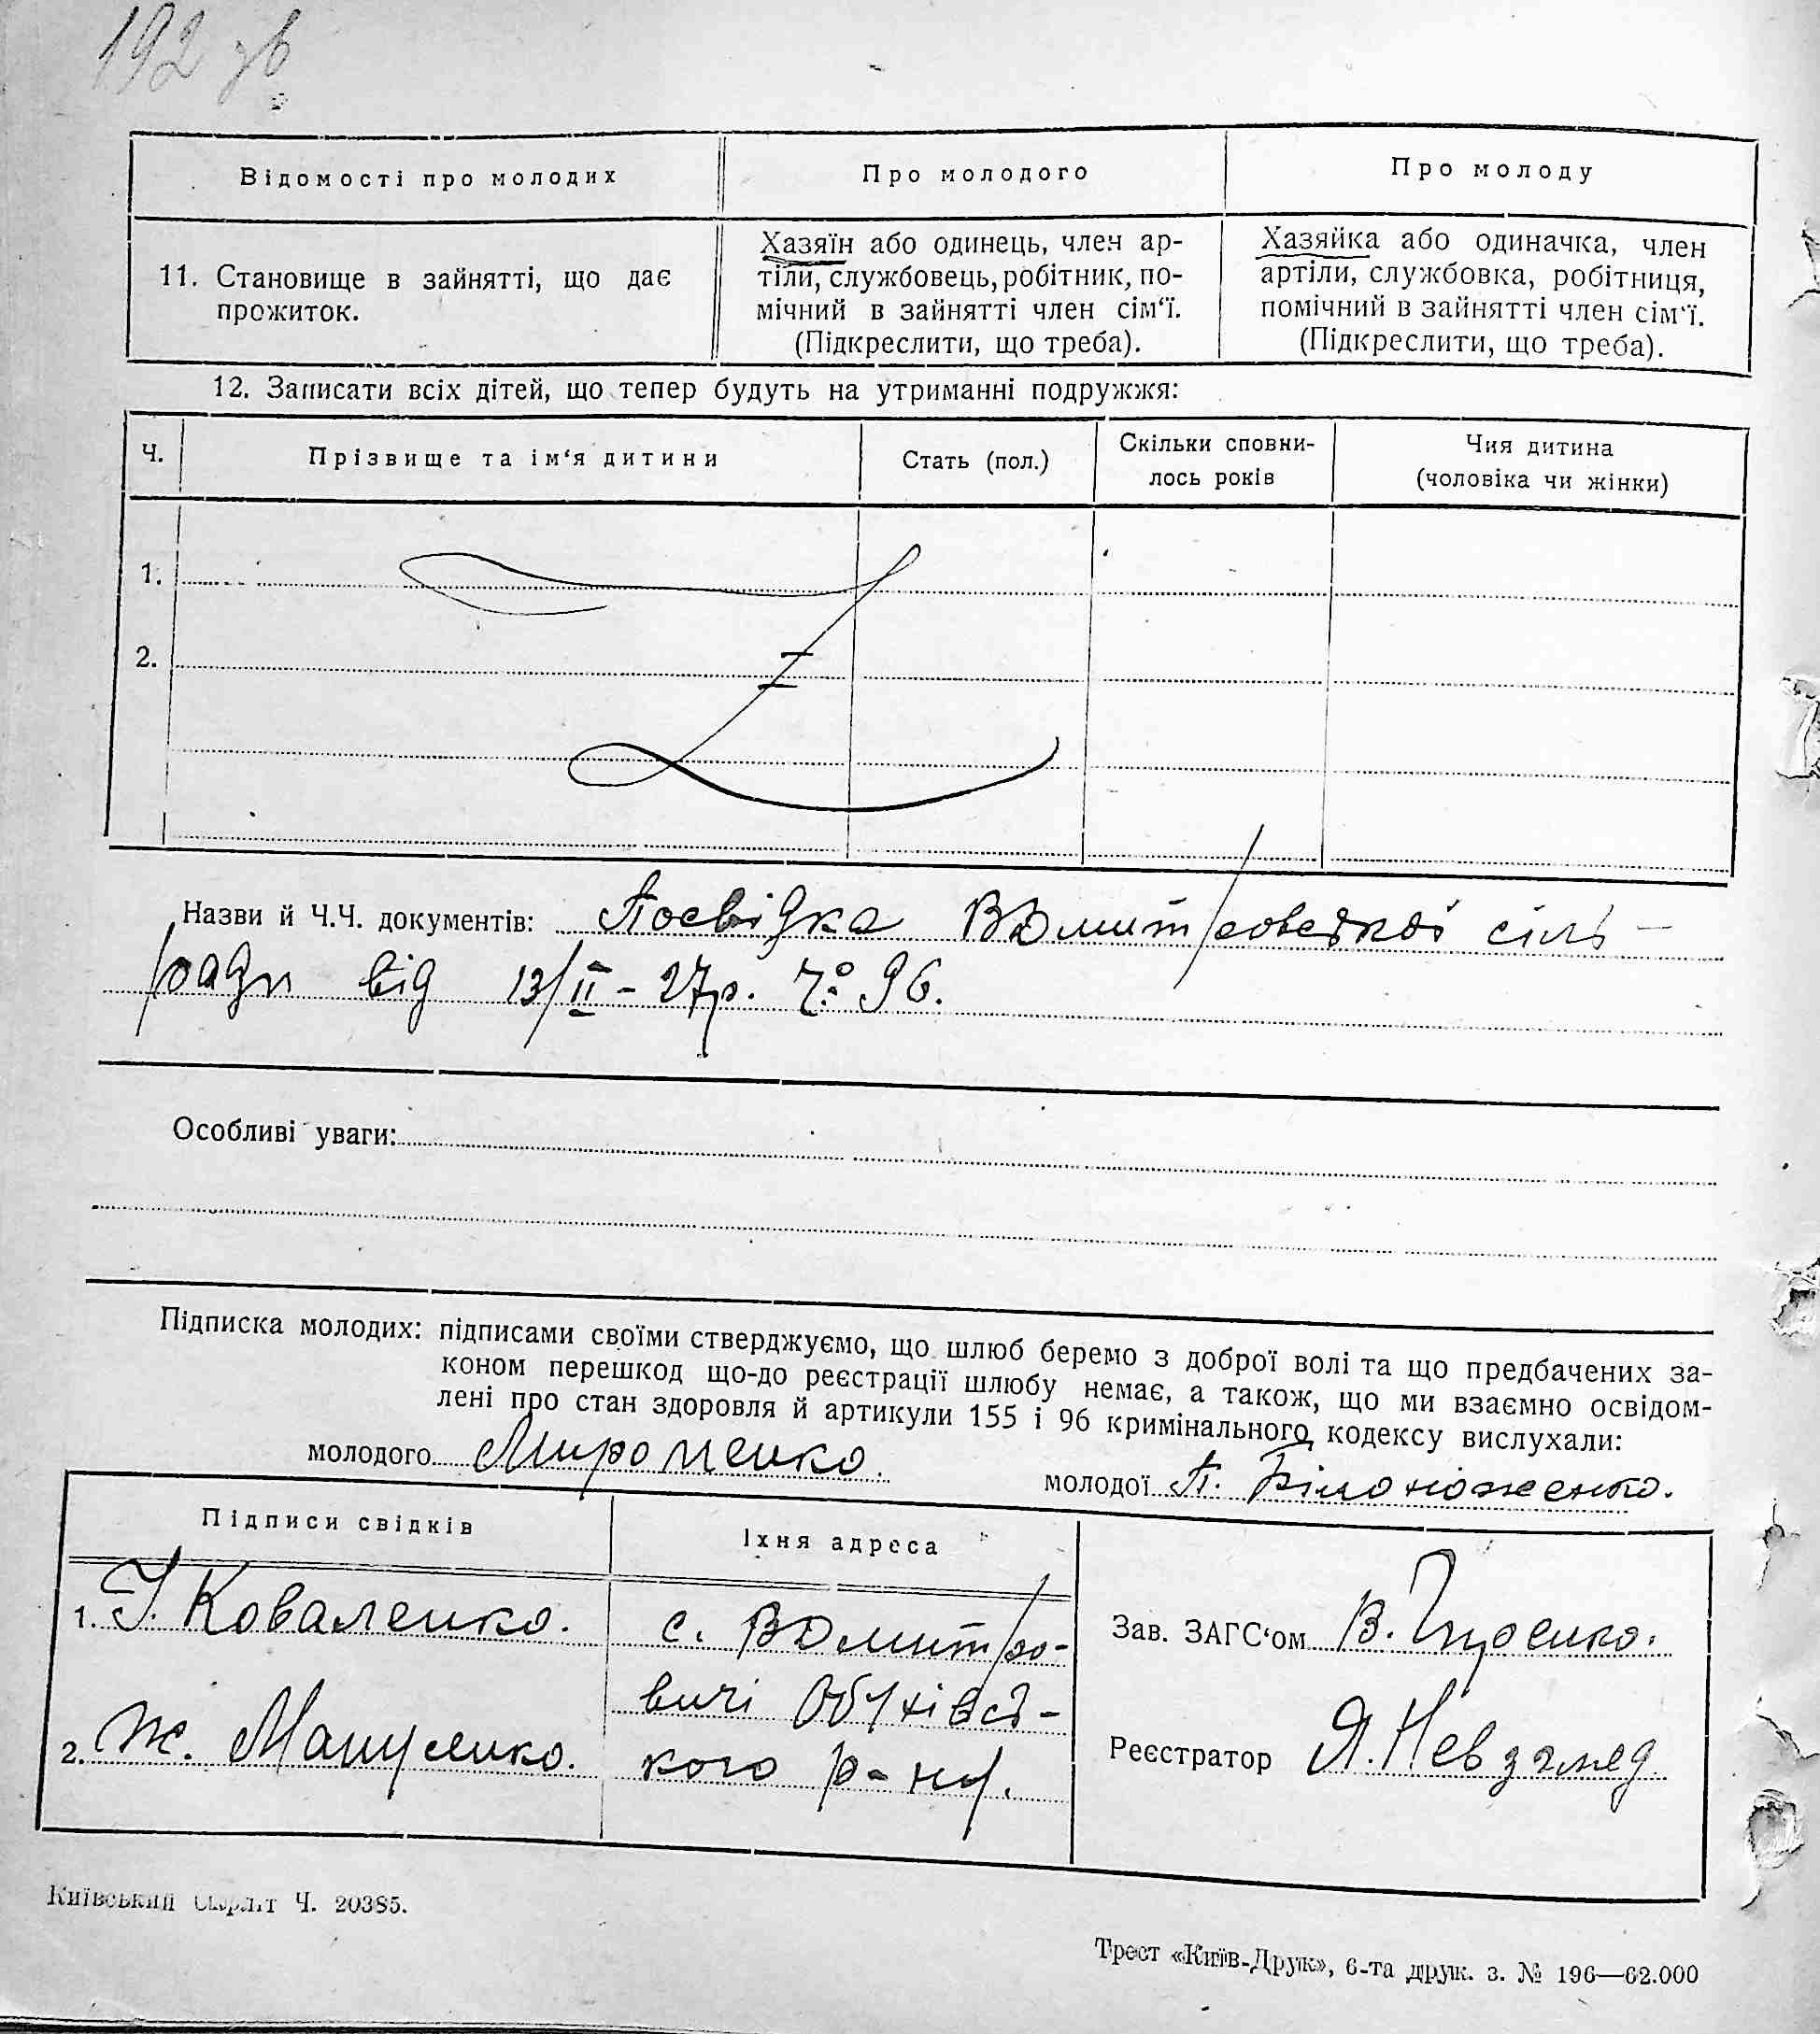 192 зв
Відомості про молодих
Про молодого
Про молоду
11. Становище в зайнятті, що дає
прожиток.
Хазяїн або одинець, член ар-
тіли, службовець, робітник, по-
мічний в зайнятті член сім‘ї.
(Підкреслити, що треба).
Хазяйка або одиначка, член
артіли, службовка, робітниця,
помічний в зайнятті член сім‘ї.
(Підкреслити, що треба).
12. Записати всіх дітей, що тепер будуть на утриманні подружжя:
Ч.
Прізвище та ім‘я дитини
Стать (пол.)
Скільки сповни-
лось років
Чия дитина
(чоловіка чи жінки)
1.
2.
Назви й Ч.Ч. документів: Посвідка ВДмитровської сіль-
ради від 13/II - 27р. Ч: 96.
Особливі уваги:
Підписка молодих: підписами своїми стверджуємо, що шлюб беремо з доброї волі та що предбачених за-
коном перешкод що-до реєстрації шлюбу немає, а також, що ми взаємно освідом-
лені про стан здоровля й артикули 155 і 96 кримінального кодексу вислухали:
молодого Мироненко.
молодої П. Білоноженко.
Підписи свідків
Їхня адреса
1. І. Коваленко.
2. Ж. Мануленко.
с. ВДмитро-
вичі Обухівсь-
кого р-ну.
Зав. ЗАГС‘ом В.
Реєстратор Я. Невзгляд
Київський Окрліт Ч. 20385.
Трест «Київ-Друк», 6-та друк. з. № 196—62.000